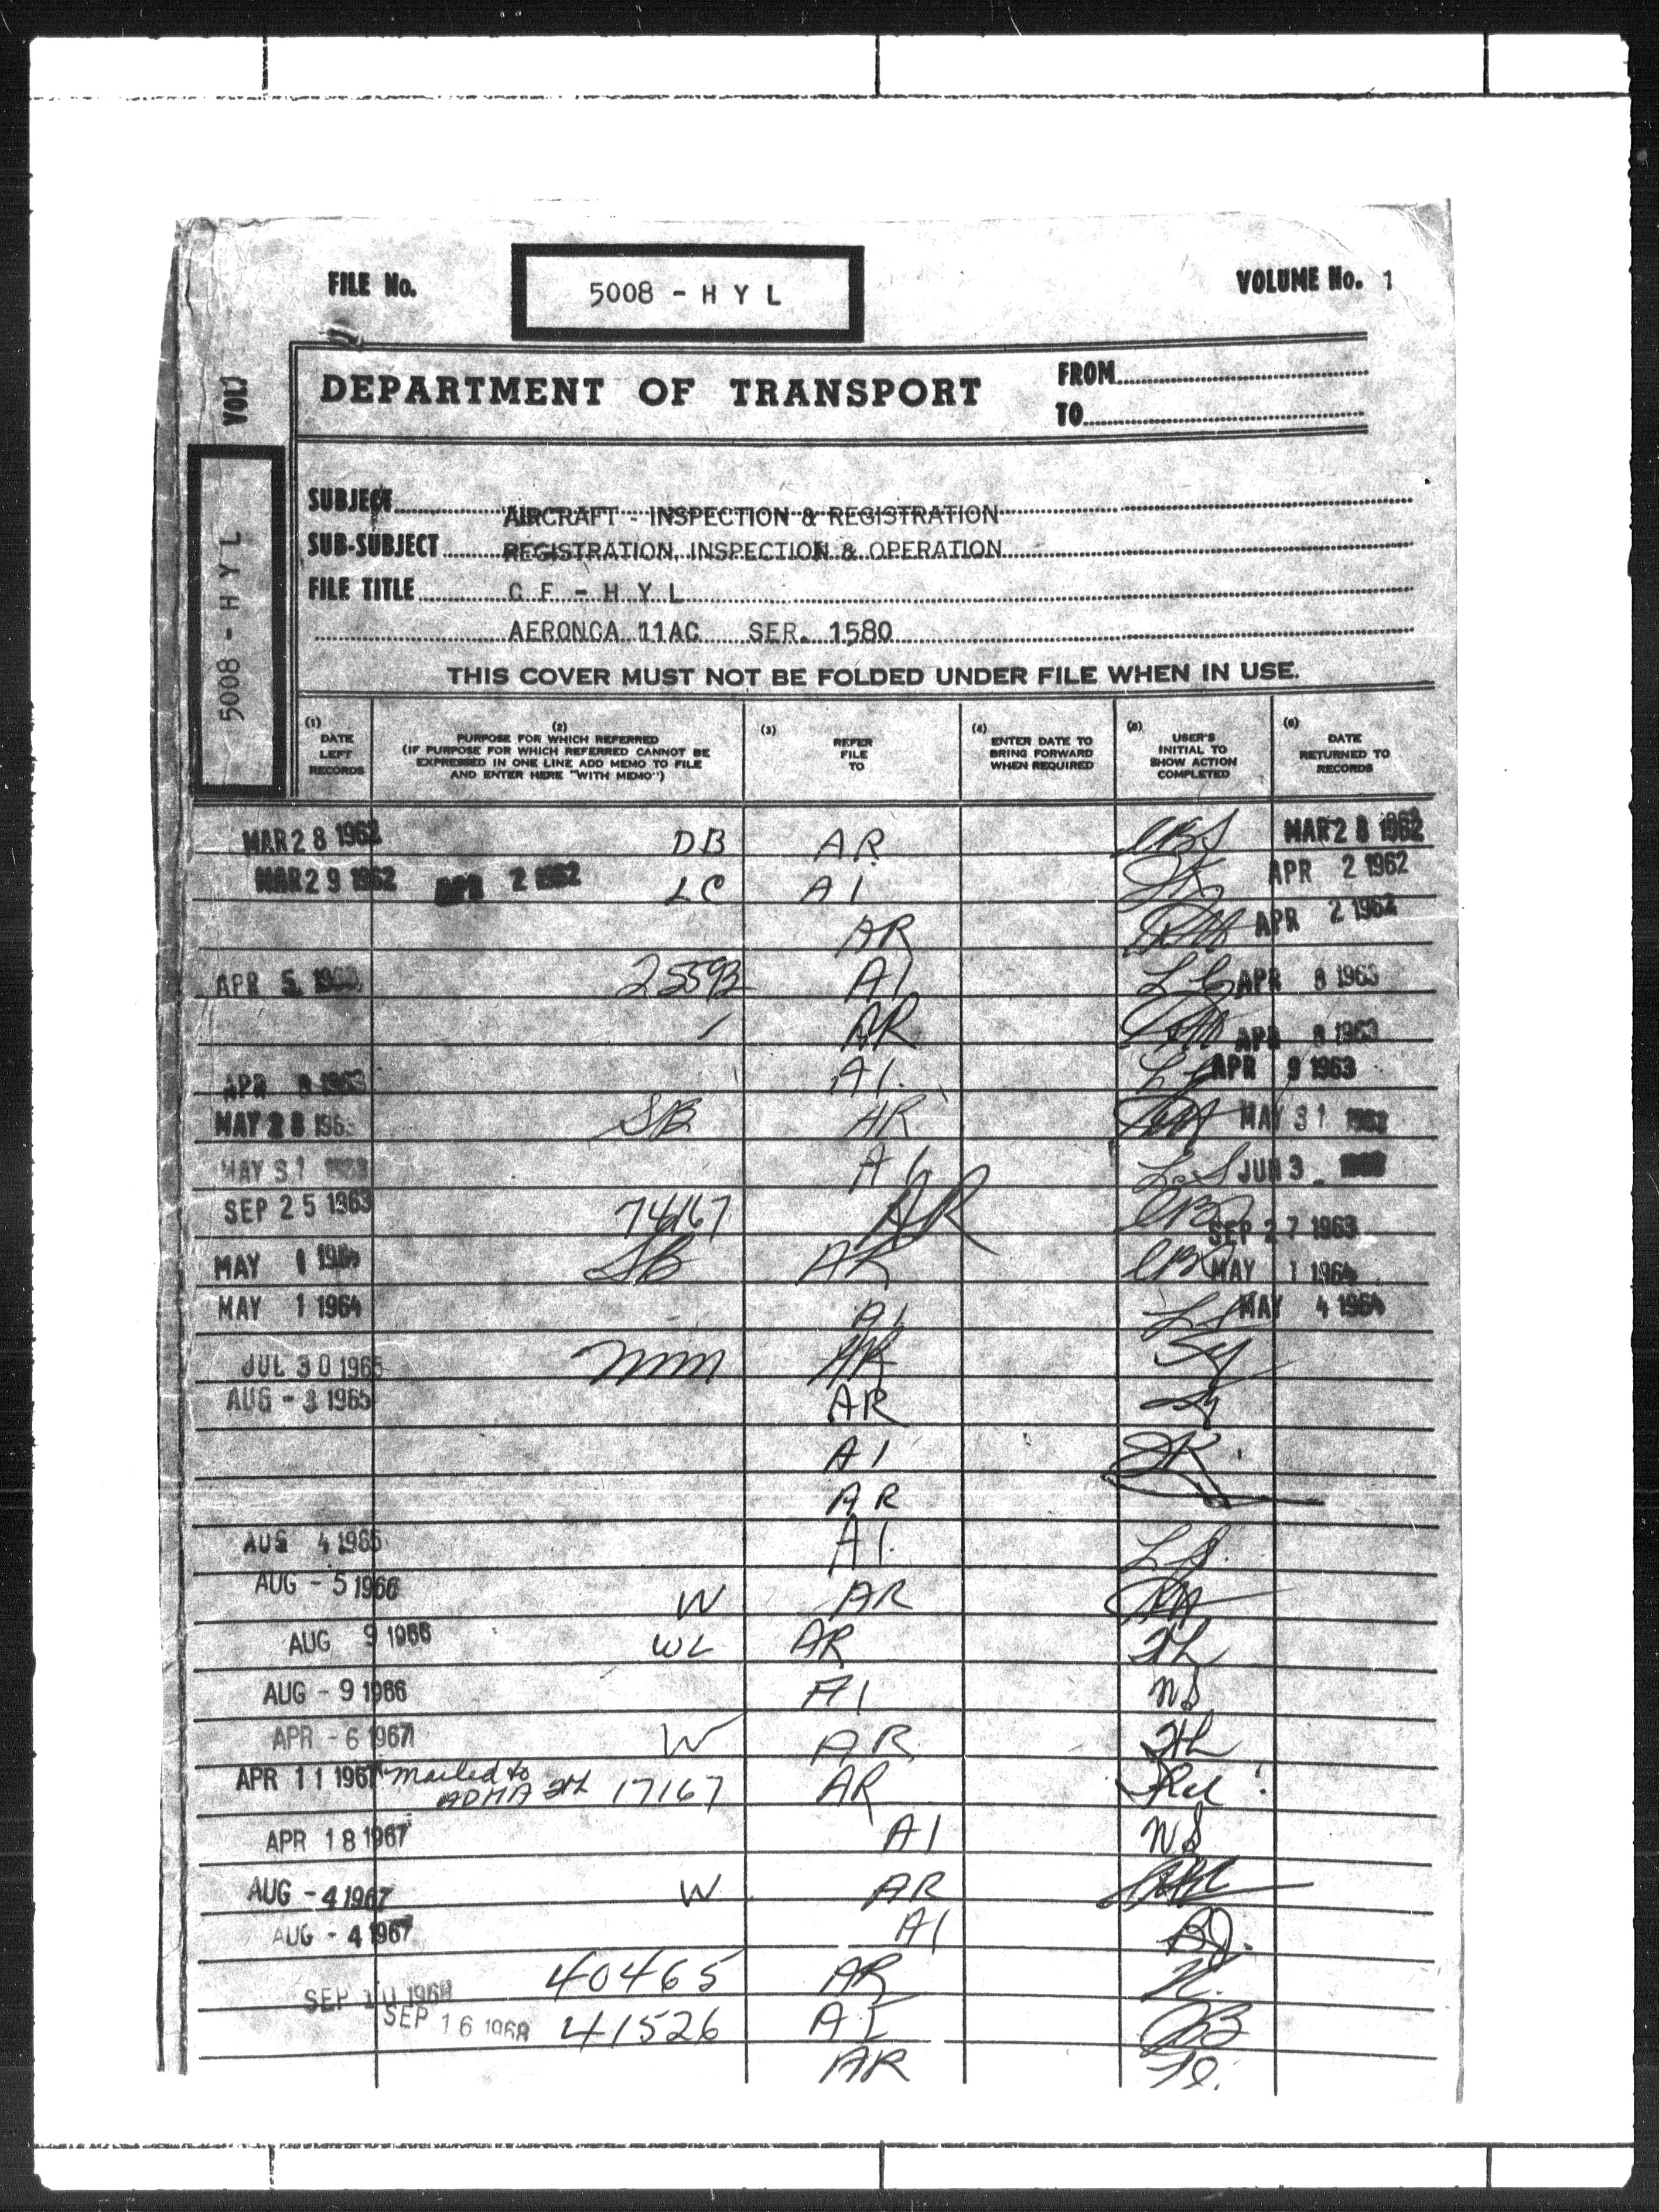 FILE No. 5008 - H Y L VOLUME No. 1
DEPARTMENT OF TRANSPORT
FROM
TO
VOL 1
5008 - H Y L
SUBJECT AIRCRAFT - INSPECTION & REGISTRATION
SUB-SUBJECT REGISTRATION, INSPECTION & OPERATION
FILE TITLE C F - H Y L
AERONCA 11AC SER. 1580
THIS COVER MUST NOT BE FOLDED UNDER FILE WHEN IN USE.
(1) DATE LEFT RECORDS
(2) PURPOSE FOR WHICH REFERRED
(IF PURPOSE FOR WHICH REFERRED CANNOT BE
EXPRESSED IN ONE LINE ADD MEMO TO FILE
AND ENTER HERE "WITH MEMO")
(3) REFER FILE TO
(4) ENTER DATE TO BRING FORWARD WHEN REQUIRED
(5) USER'S INITIAL TO SHOW ACTION COMPLETED
(6) DATE RETURNED TO RECORDS
MAR 28 1962 DB AR MAR 28 1962
MAR 29 1962 APR 2 1962 LC AI APR 2 1962
AR APR 2 1962
APR 5 1963 25592 AI APR 8 1963
AR APR 8 1963
APR 8 1963 AI. APR 9 1963
MAY 28 1963 SB AR MAY 31
MAY 31 AI LS JUN 3
SEP 25 1963 74167 AR SEP 27 1963
MAY 1 1964 SB AR MAY 1 1964
MAY 1 1964 AI LS MAY 4 1964
JUL 30 1965 mm AR
AUG - 3 1965 AR
AI
AR
AUG 4 1965 AI. LS.
AUG - 5 1966 W AR
AUG 9 1966 WL AR
AUG - 9 1966 AI NS
APR - 6 1967 W AR
APR 11 1967 mailed to ADMA 17167 AR
APR 18 1967 AI NS
AUG - 4 1967 W AR
AUG - 4 1967 AI
SEP 10 1968 40465 AR
SEP 16 1968 41526 AI
AR